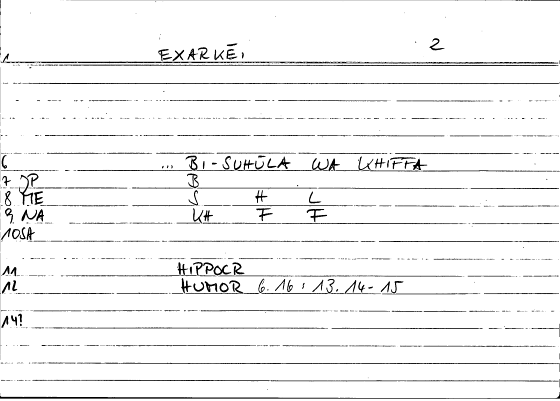 1 EXARKĒ, 2
6 ... BI-SUHŪLA WA KHIFFA
7 JP B
8 ME S H L
9, NA KH F F
10SA
11 HIPPOCR
12 HUMOR 6.16 ; 13.14-15
14?